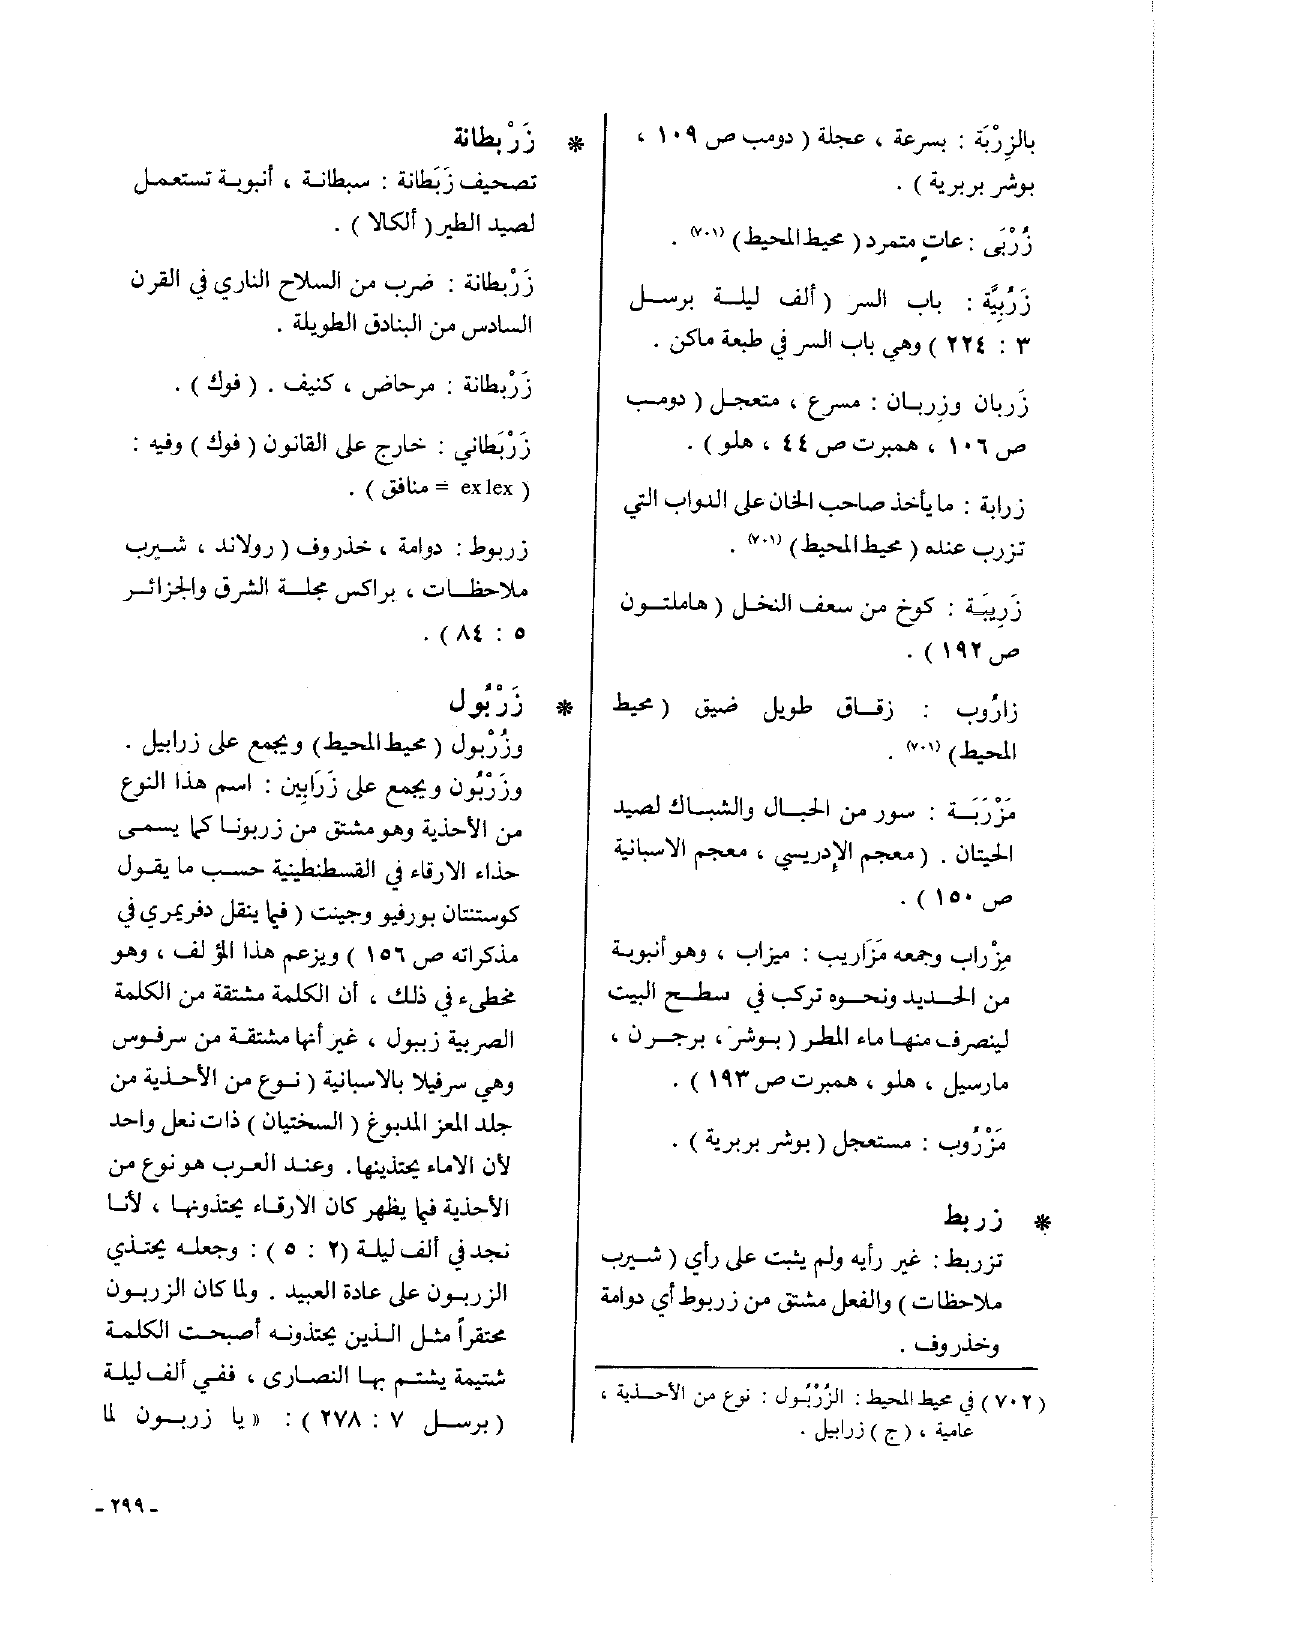 بالزِرْبَة : بسرعة ، عجلة ( دومب ص ١٠٩ ،
بوشر بربرية ) .
زُرْبَى : عاتٍ متمرد ( محيط المحيط ) (٧٠١) .
زَرْبِيَّة : باب السر ( ألف ليلة برسل
٣ : ٢٢٤ ) وهي باب السر في طبعة ماكن .
زَربان وزربـان : مسرع ، متعجل ( دومب
ص ١٠٦ ، همبرت ص ٤٤ ، هلو ) .
زرابة : ما يأخذ صاحب الخان على الدواب التي
تزرب عنده ( محيط المحيط ) (٧٠١) .
زَرِيبَة : كوخ من سعف النخل ( هاملتون
ص ١٩٢ ) .
زارُوب : زقاق طويل ضيق ( محيط
المحيط ) (٧٠١) .
مَزْرَبَة : سور من الحبال والشباك لصيد
الحيتان . ( معجم الإدريسي ، معجم الاسبانية
ص ١٥٠ ) .
مِزْراب وجمعه مَزَاريب : ميزاب ، وهو أنبوبة
من الحديد ونحوه تركب في سطح البيت
لينصرف منها ماء المطر ( بوشر ، برجرن ،
مارسيل ، هلو ، همبرت ص ١٩٣ ) .
مَزْرُوب : مستعجل ( بوشر بربرية ) .
* زربط
تزربط : غير رأيه ولم يثبت على رأي ( شيرب
ملاحظات ) والفعل مشتق من زربوط أي دوامة
وخذروف .
( ٧٠٢ ) في محيط المحيط : الزُرْبُول : نوع من الأحذية ،
عامية ، ( ج ) زرابيل .
* زَرْبطانة
تصحيف زَبَطانة : سبطانة ، أنبوبة تستعمل
لصيد الطير ( ألكالا ) .
زَرْبطانة : ضرب من السلاح الناري في القرن
السادس من البنادق الطويلة .
زَرْبطانة : مرحاض ، كنيف . ( فوك ) .
زَرْبَطاني : خارج على القانون ( فوك ) وفيه :
( exlex = منافق ) .
زربوط : دوامة ، خذروف ( رولاند ، شيرب
ملاحظات ، براكس مجلة الشرق والجزائر
٥ : ٨٤ ) .
* زَرْبُول
وزُرْبول ( محيط المحيط ) ويجمع على زرابيل .
وزَرْبُون ويجمع على زَرَابِين : اسم هذا النوع
من الأحذية وهو مشتق من زربونا كما يسمى
حذاء الارقاء في القسطنطينية حسب ما يقول
كوستنتان بورفيو وجينت ( فيما ينقل دفريمري في
مذكراته ص ١٥٦ ) ويزعم هذا المؤلف ، وهو
مخطىء في ذلك ، أن الكلمة مشتقة من الكلمة
الصربية زبيول ، غير أنها مشتقة من سرفوس
وهي سرفيلا بالاسبانية ( نوع من الأحذية من
جلد المعز المدبوغ ( السختيان ) ذات نعل واحد
لأن الاماء يحتذينها . وعند العرب هو نوع من
الأحذية فيما يظهر كان الارقاء يحتذونها ، لأنا
نجد في ألف ليلة (٢ : ٥ ) : وجعله يحتذي
الزربون على عادة العبيد . ولما كان الزربون
محتقراً مثل الذين يحتذونه أصبحت الكلمة
شتيمة يشتم بها النصارى ، ففي ألف ليلة
( برسل ٧ : ٢٧٨ ) : « يا زربون لما
- ٢٩٩ -